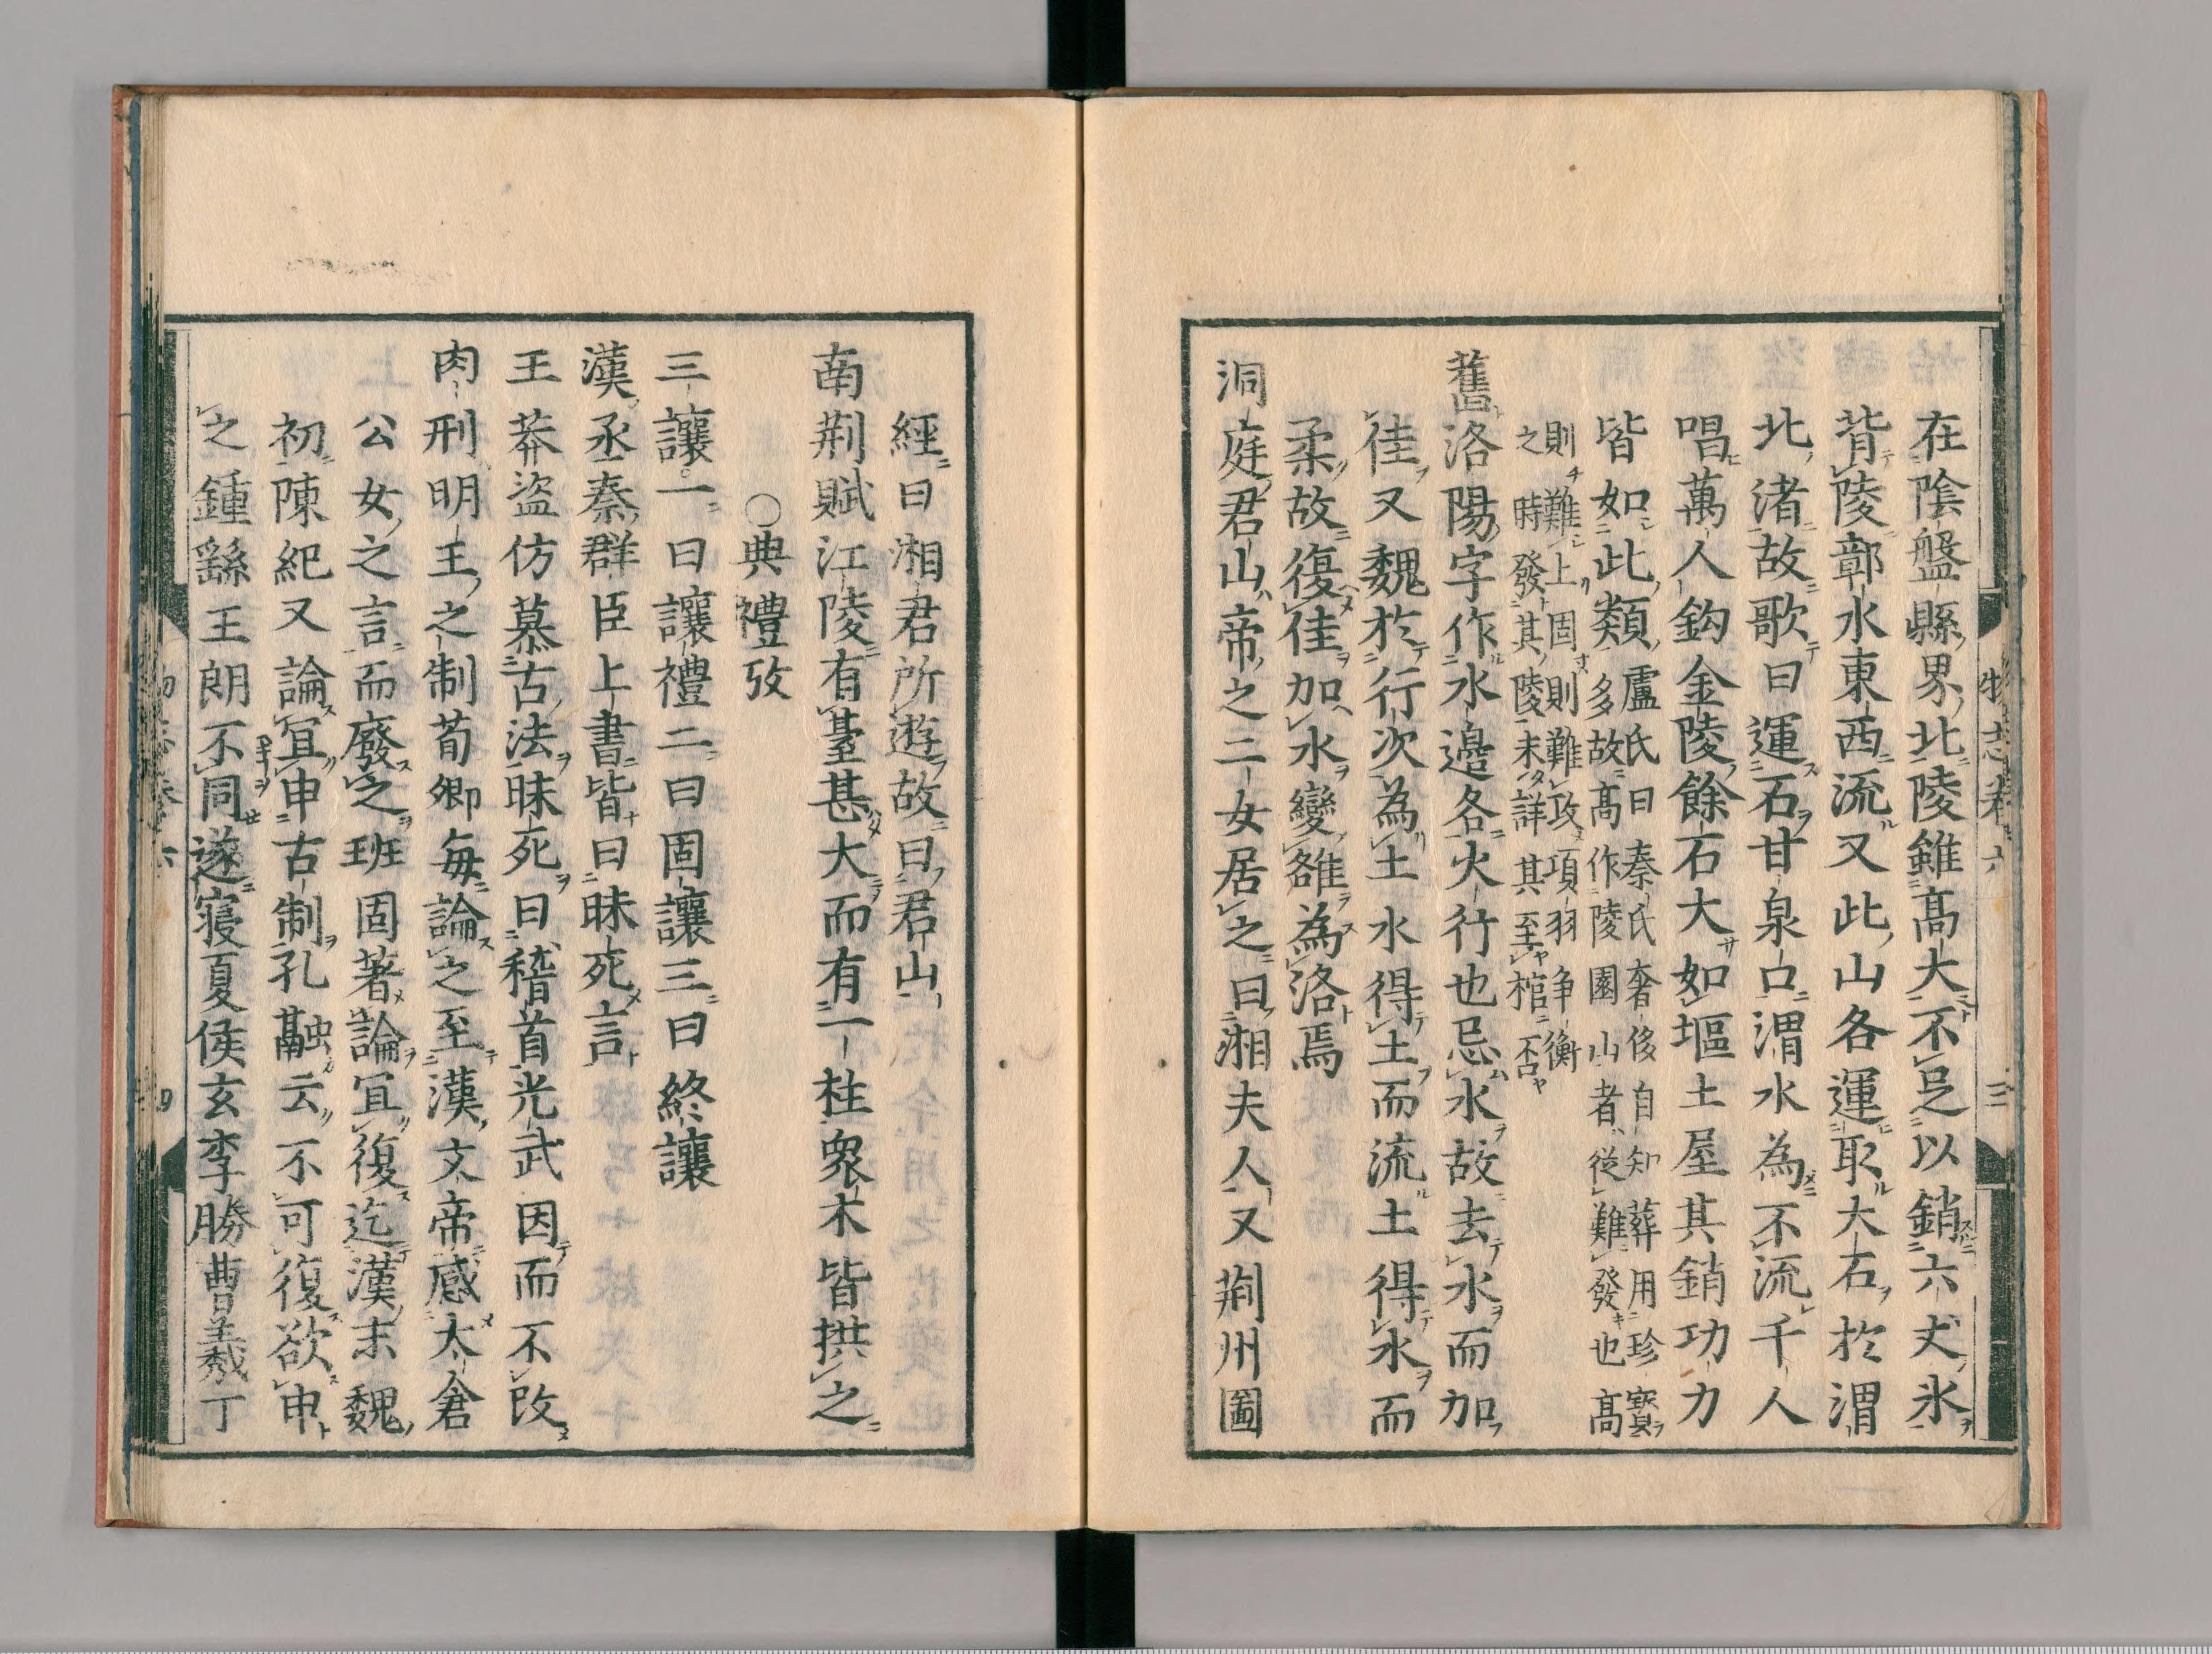 物志卷六
三
在陰盤縣界北陵雖髙大不足以銷六丈氷
背陵鄣水東西流又此山各運取大石於渭
北渚故歌曰運石甘泉口渭水為不流千人
唱萬人鈎金陵餘石大如塸土屋其銷功力
皆如此類盧氏曰秦氏奢侈自知葬用珍寳
多故髙作陵園山者從難發也髙
則難上固則難攻項羽争衡
之時發其陵未詳其至棺否
舊洛陽字作水邉各火行也忌水故去水而加
佳又魏於行次為土水得土而流土得水而
柔故復佳加水變雒為洛焉
洞庭君山帝之二女居之曰湘夫人又荆州圖
經曰湘君所遊故曰君山
南荆賦江陵有臺甚大而有一柱衆木皆拱之
○典禮攷
三讓一曰讓禮二曰固讓三曰終讓
漢丞秦群臣上書皆曰昧死言
王莽盗仿慕古法昧死曰稽首光武因而不改
肉刑明王之制荀卿毎論之至漢文帝感太倉
公女之言而廢之班固著論冝復迄漢末魏
初陳紀又論冝申古制孔融云不可復欲申
之鍾繇王朗不同遂寢夏侯玄李勝曹羲丁